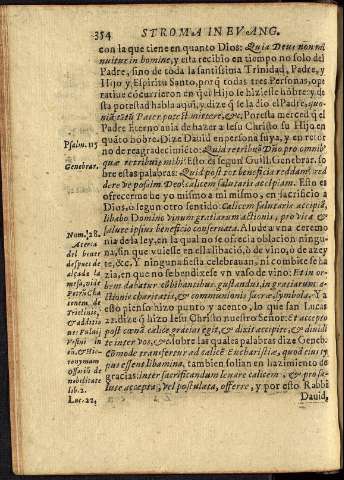 354 STROMA IN EVANG.
con la que tiene en quanto Dios: Quia Deus non mi
nuitur in homine, y esta recibio en tiempo no solo del
Padre, sino de toda la santissima Trinidad, Padre, y
Hijo y Espiritu Santo, porq̃ todas tres Personas, ope
ratiue cõcurrieron en q̃ el Hijo se hiziesse hõbre: y de
sta potestad habla aquí, y dize q̃ se la dio el Padre, quo
niã totũ Pater, potest mittere, &c, Potesta merced q̃ el
Padre Eterno auia de hazer a Iesu Christo su Hijo en
quãto hõbre. Dize Dauid en persona suya, y en retor
no de reagradecimiẽto: Quid retribuã Dño pro omnib⁹
quæ retribuit mihi: Esto es segun Guill. Genebrar. so
bre estas palabras: Quid post tot beneficia reddam? red
dere ve possim Deo. calicem salutaris accipiam. Esto es
ofrecerme he yo mismo a mi mismo, en sacrificio a
Dios, ò segun otro sentido: Calicem salutaris accipiã,
libabo Domino vinum gratiarum actionis, pro vita &
salute ipsius beneficio conseruata. Alude a vna ceremo
nia de la ley, en la qual no se ofrecia oblacion ningu
na, sin que vuiesse en esta libaciõ, ò de vino, ò de azey
te, &c. Y ninguna fiesta celebrauan, ni combite se ha
zia, en que no se bendixesse vn vaso de vino: Et in or
bem dabatur cõbibancibus, gustandus, in gratiarum a
ctionis charitatis, & communionis sacra symbola. Ya
esto pienso hizo punto y acento, lo que san Lucas
22. dize q̃ hizo Iesu Christo nuestro Señor: Et accepto
post cœnã calice gratias egit, & dixit accipite, & diuidi
te inter vos, &c. sobre las quales palabras dize Geneb.
Cõmode transfertur ad calicẽ Eucharistiæ, quod eius ty
pus essent libamina, tambien solian en hazimiento de
gracias: inter sacrificandum leuare calicem, & pro sa-
lute accepta, vel postulata, offerre, y por esto Rabbi
Dauid,
Psalm. 115
Genebrar.
Num. 28.
Acerca
del beuer
despues de
alçada la
mesa, vide
Petrũ Cha
conem de
Triclinio,
& additio
nes Fuluij
Vrsini in
eũ, & Hie-
ronymum
Ossoriũ de
nobilitate
lib. 2.
Luc. 22.